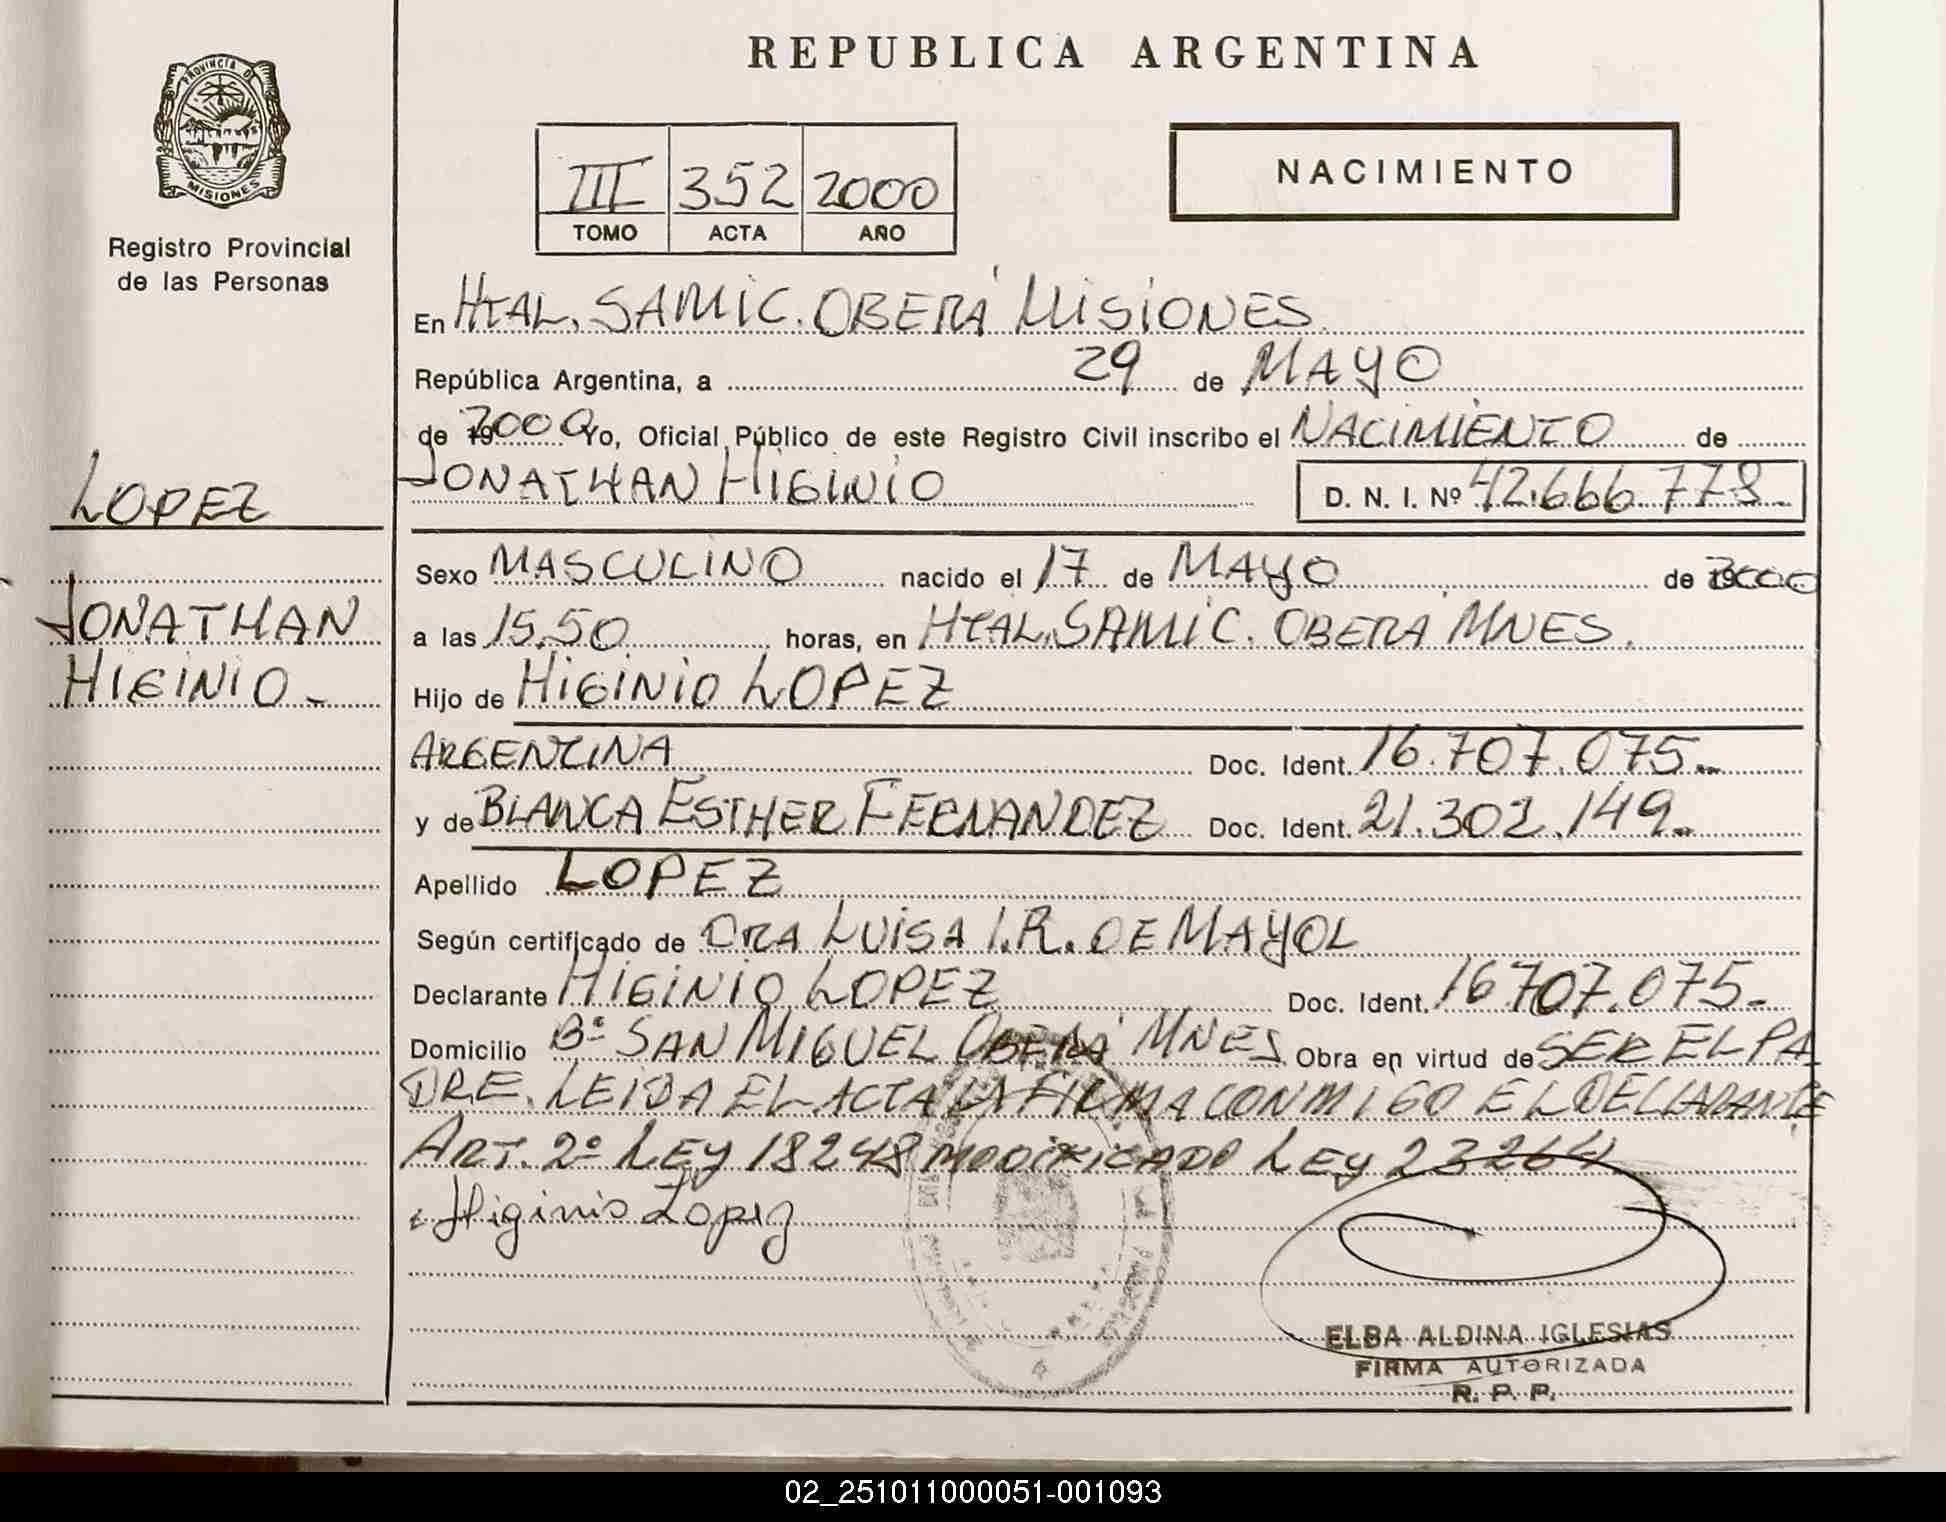 REPUBLICA ARGENTINA
PROVINCIA DE
MISIONES
Registro Provincial
de las Personas
III 352 2000
TOMO ACTA AÑO
NACIMIENTO
En HTAL. SAMIC. OBERÁ MISIONES
República Argentina, a 29 de MAYO
de 2000 Yo, Oficial Público de este Registro Civil inscribo el NACIMIENTO de
JONATHAN HIGINIO D. N. I. Nº 42.666.778
LOPEZ
JONATHAN
HIGINIO -
Sexo MASCULINO nacido el 17 de MAYO de 2000
a las 15.50 horas, en HTAL. SAMIC. OBERÁ MNES.
Hijo de HIGINIO LOPEZ
ARGENTINA Doc. Ident. 16.707.075-
y de BLANCA ESTHER FERNANDEZ Doc. Ident. 21.302.149-
Apellido LOPEZ
Según certificado de DRA LUISA I.R. DE MAYOL
Declarante HIGINIO LOPEZ Doc. Ident. 16.707.075-
Domicilio Bº SAN MIGUEL OBERÁ MNES Obra en virtud de SER EL PA
DRE. LEIDA EL ACTA LA FIRMA CONMIGO EL DECLARANTE
ART. 2º LEY 18248 MODIFICADO LEY 23264
Higinio Lopez
ELBA ALDINA IGLESIAS
FIRMA AUTORIZADA
R. P. P.
02_251011000051-001093